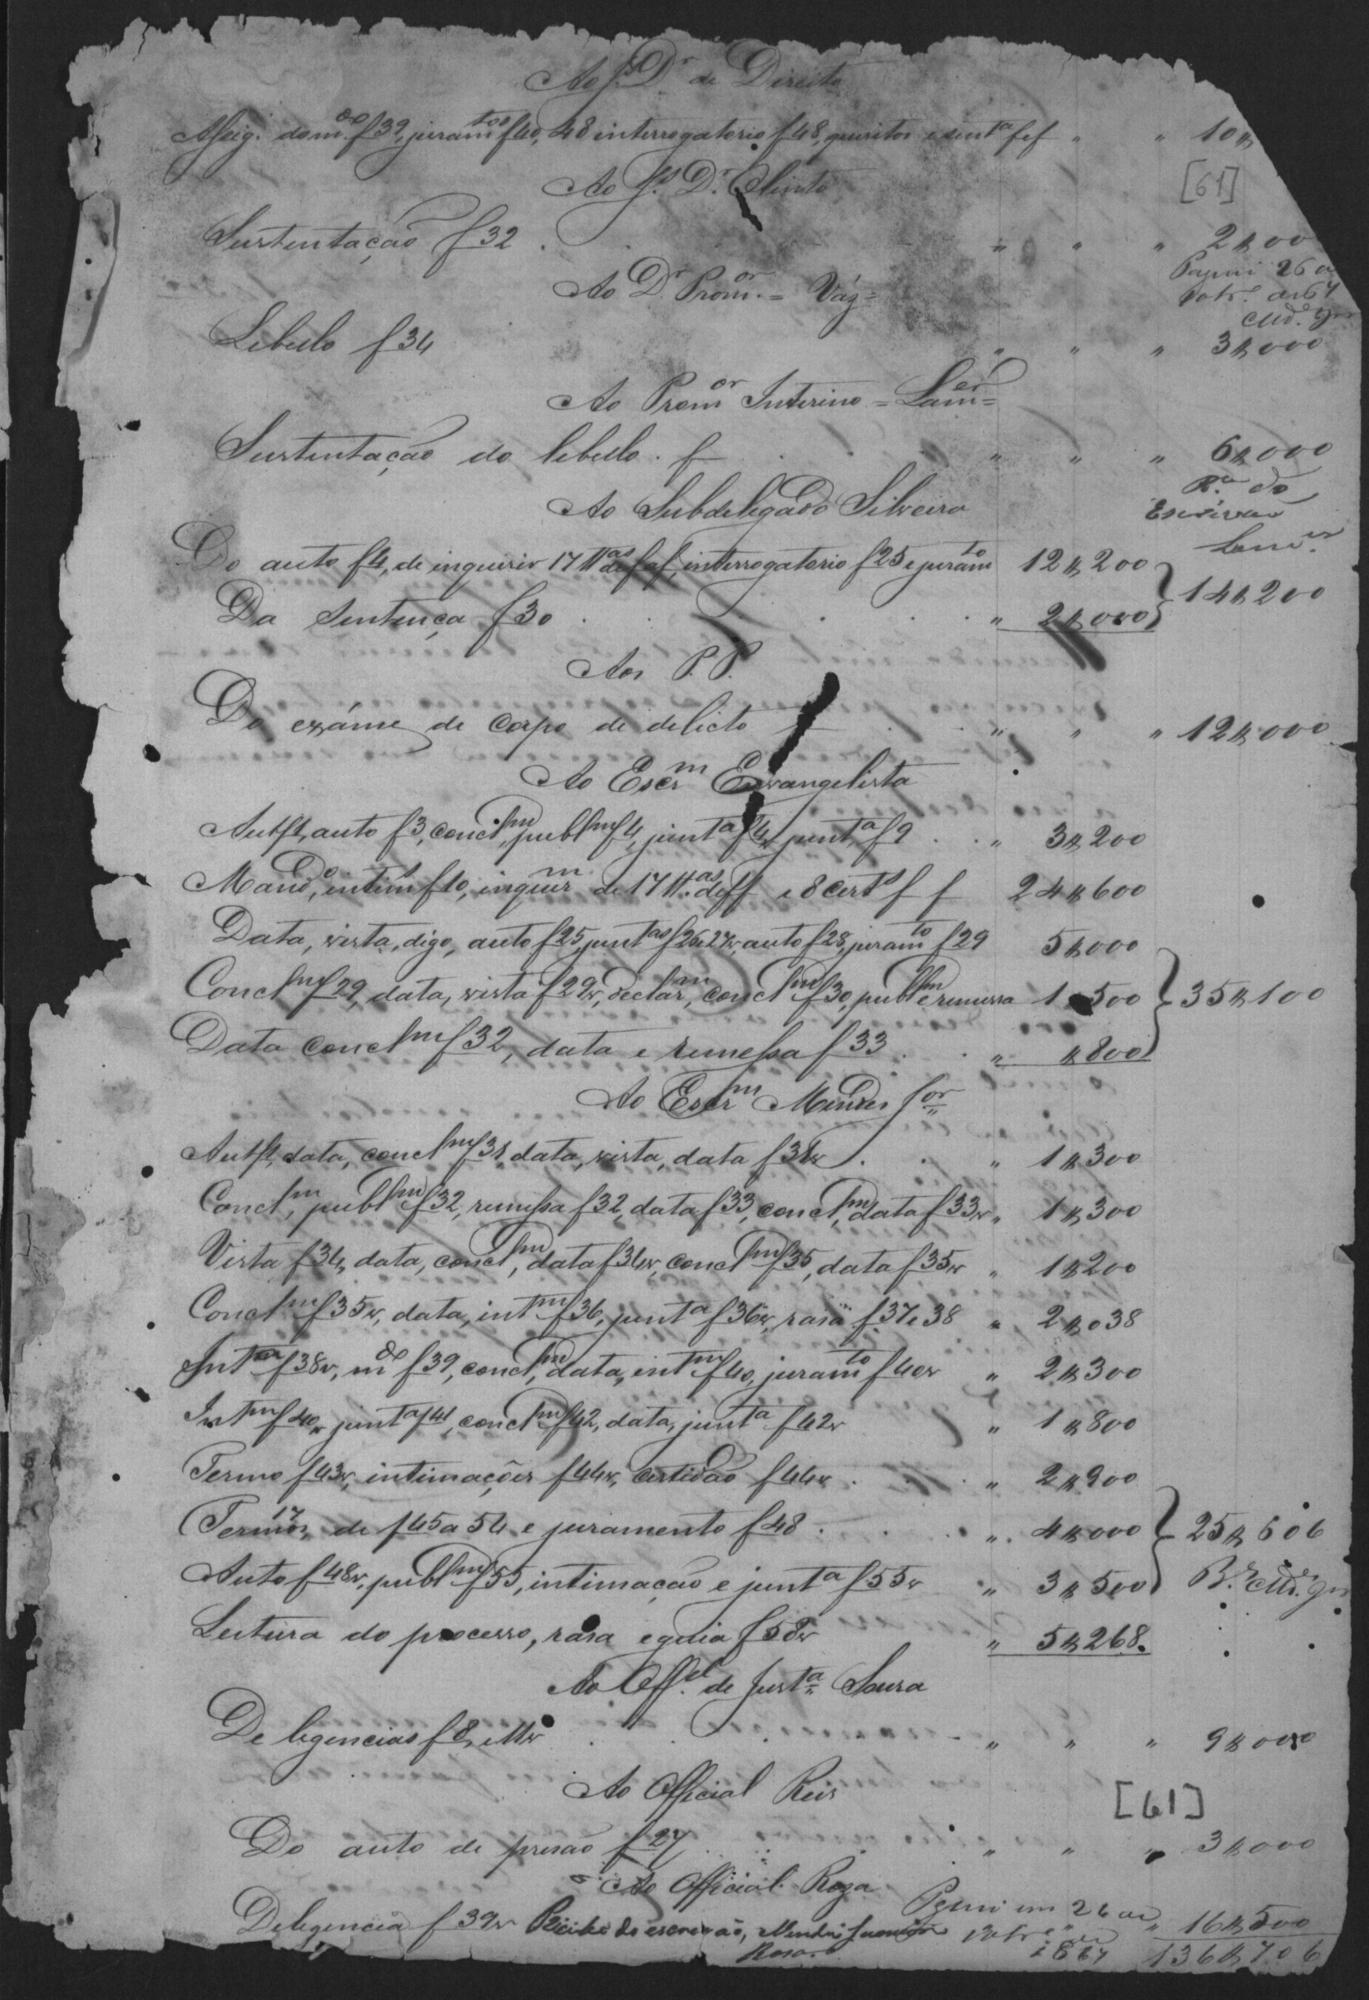 Ao J.s Dr de Direito
Assig. do m.do f 39, juram.tos f 40, 48 interrogatorio f 48, quisitos e sent.a f f " " 10$
Ao J.s Dr. Olinto
[61]
Sustentação f 32 . " " " 2$00
Ao Dr Prom.or = Váz =
Paguei 26
de 67
Lebello f 34 " " " 3$000
Ao Prom.or Interino = Lam.er =
Sustentação do lebello. f " " " 6$000
Ao Subdelegado Silveira
R.ce do
Escrivão
Do auto f 4, de inquirir 17 tt.as de f a f, interrogatorio f 25 e juram.to 12$200
14$200
Da Sentença f 30 . . . " 2$000
Aos P.P.
Do exáme de corpo de delicto f . . " " " 12$000
Ao Escr.m Evangelista
Aut.t, auto f 3, concl.m, publ.m f 4, junt.a f 4v, junt.a f 9 . . " 3$200
Mand.o, intim.s f 10, inquir.m de 17 tt.as de f f e 8 cert.s f f 24$600
Data, vista, digo, auto f 25, junt.as f 26 e 27v, auto f 28, juram.to f 29 5$000
Concl.m f 29, data, vista f 29v, declar.m, concl.m f 30, publ.m e remessa 1$500 35$100
Data concl.m f 32, data e remessa f 33 . . " $800
Ao Escr.m Mendes J.or
Aut.t, data, concl.m f 31, data, vista, data f 31v . . " 1$300
Concl.m, publ.m f 32, remessa f 32, data f 33, concl.m, data f 33v " 1$300
Vista f 34, data, concl.m, data f 34v, concl.m f 35, data f 35v " 1$200
Concl.m f 35v, data, int.m f 36, junt.a f 36v, rasa f. 37 e 38 " 2$038
Junt.a f 38v, m.do f 39, concl.m, data, int.m f 40, juram.to f 40v " 2$300
Int.m f 40v, junt.a f 41, concl.m f 42, data, junt.a f 42v " 1$800
Termo f 43v, intimações f 44v, certidão f 44v . . " 2$900
Termos, 17 de f 45 a 54 e juramento f 48 . . . " 4$000 25$606
Auto f 48v, publ.m f 55, intimação e junt.a f 55v " 3$500
Leitura do processo, rasa e guia f 58v " 5$268.
Ao Off.al de Just.a Soura
Deligencias f 8, e 11v . . . " " " 9$000
Ao Official Reis
[61]
Do auto de prisão f 27 . . . " " " 3$000
Ao Official Roza
Deligencia f 39v Recibi do escrivão, Mendes Junior " 16$500
Paguei em 26 de
de 1867
Rosa
136$706